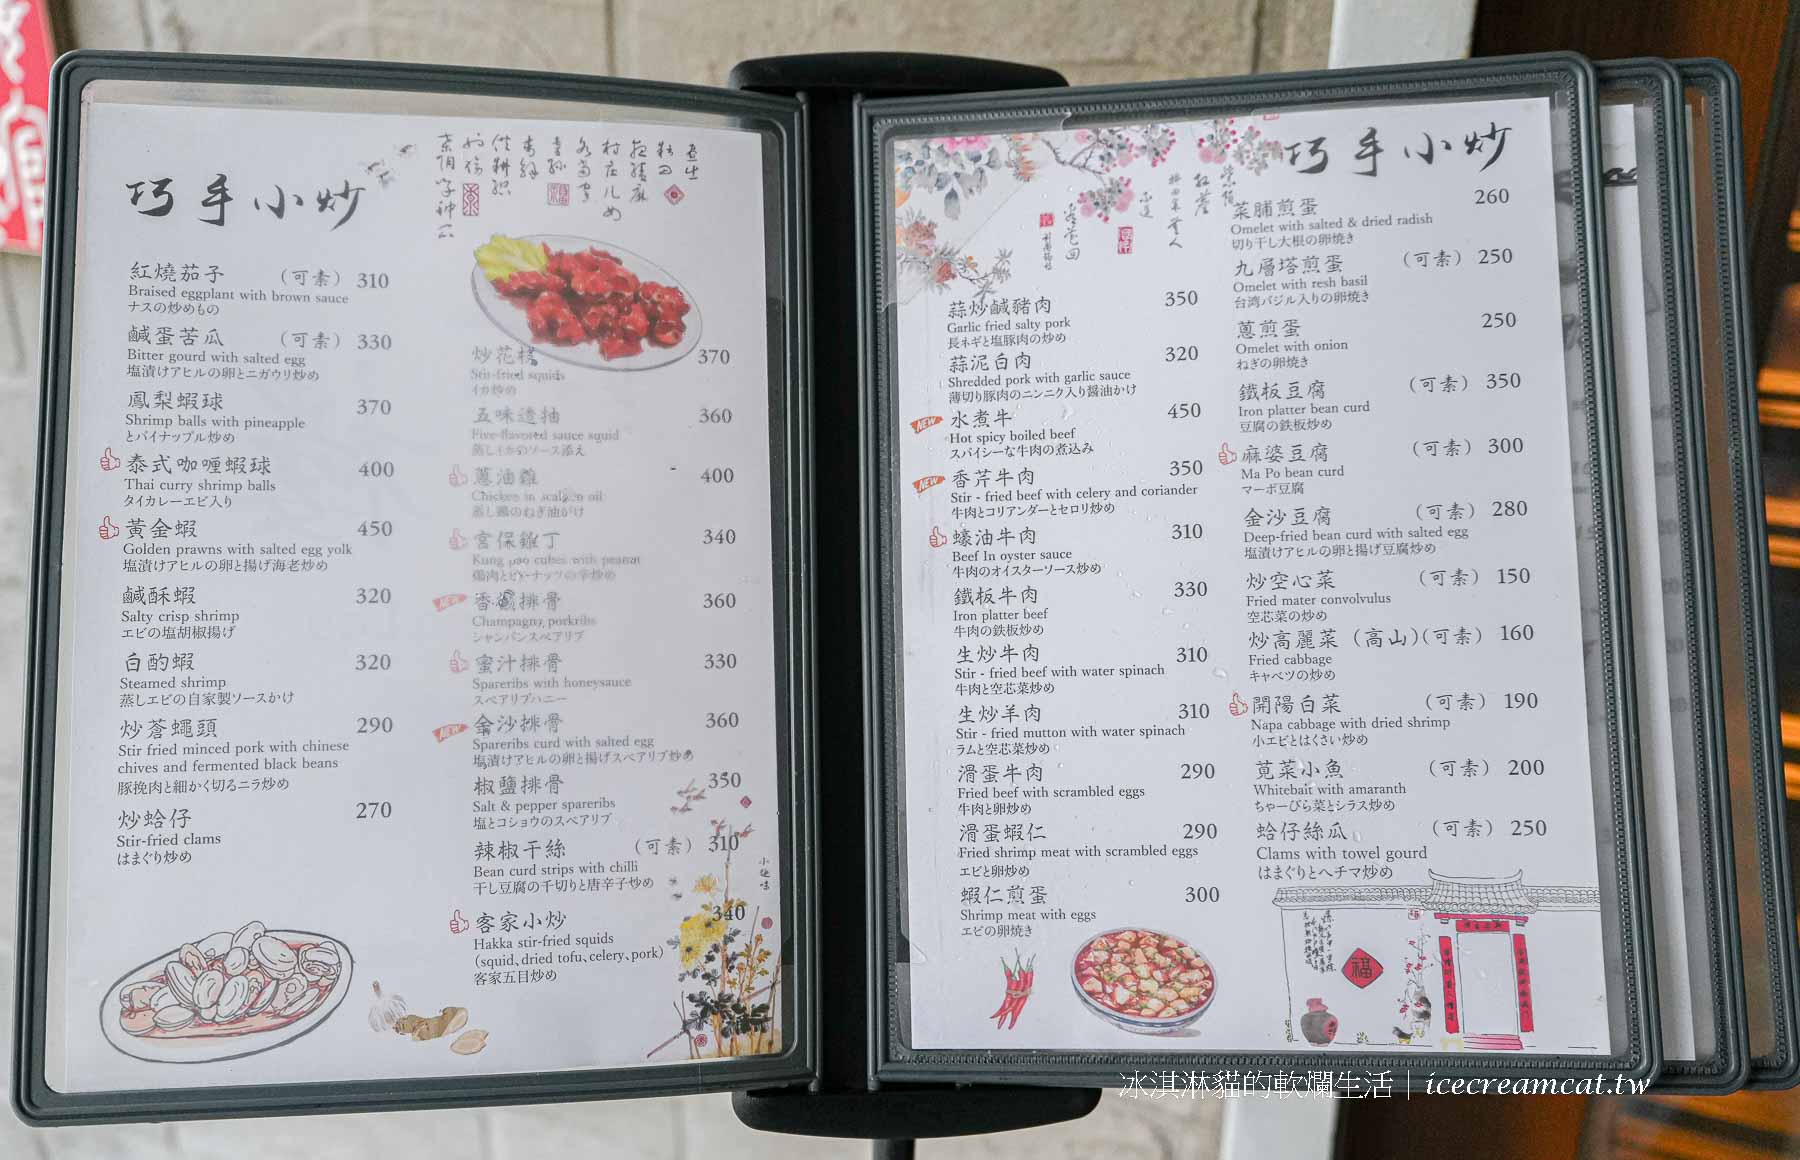 巧手小炒
紅燒茄子 （可素） 310
Braised eggplant with brown sauce
ナスの炒めもの
鹹蛋苦瓜 （可素） 330
Bitter gourd with salted egg
塩漬けアヒルの卵とニガウリ炒め
鳳梨蝦球 370
Shrimp balls with pineapple
とパイナップル炒め
泰式咖喱蝦球 400
Thai curry shrimp balls
タイカレーエビ入り
黃金蝦 450
Golden prawns with salted egg yolk
塩漬けアヒルの卵と揚げ海老炒め
鹹酥蝦 320
Salty crisp shrimp
エビの塩胡椒揚げ
白酌蝦 320
Steamed shrimp
蒸しエビの自家製ソースかけ
炒蒼蠅頭 290
Stir fried minced pork with chinese
chives and fermented black beans
豚挽肉と細かく切るニラ炒め
炒蛤仔 270
Stir-fried clams
はまぐり炒め
炒花枝 370
Stir-fried squids
イカ炒め
五味透抽 360
Five-flavored sauce squid
蒸しイカのソース添え
蔥油雞 400
Chicken in scalion oil
蒸し鶏のねぎ油がけ
宮保雞丁 340
Kung pao cubes with peanut
鶏肉とピーナッツの辛炒め
NEW 香檳排骨 360
Champagny porkribs
シャンパンスペアリブ
蜜汁排骨 330
Spareribs with honeysauce
スペアリブハニー
NEW 金沙排骨 360
Spareribs curd with salted egg
塩漬けアヒルの卵と揚げスペアリブ炒め
椒鹽排骨 350
Salt & pepper spareribs
塩とコショウのスペアリブ
辣椒干絲 （可素） 310
Bean curd strips with chilli
干し豆腐の千切りと唐辛子炒め
客家小炒 340
Hakka stir-fried squids
(squid、dried tofu、celery、pork)
客家五目炒め
小趣味
巧手小炒
蒜炒鹹豬肉 350
Garlic fried salty pork
長ネギと塩豚肉の炒め
蒜泥白肉 320
Shredded pork with garlic sauce
薄切り豚肉のニンニク入り醤油かけ
NEW 水煮牛 450
Hot spicy boiled beef
スパイシーな牛肉の煮込み
NEW 香芹牛肉 350
Stir - fried beef with celery and coriander
牛肉とコリアンダーとセロリ炒め
蠔油牛肉 310
Beef In oyster sauce
牛肉のオイスターソース炒め
鐵板牛肉 330
Iron platter beef
牛肉の鉄板炒め
生炒牛肉 310
Stir - fried beef with water spinach
牛肉と空芯菜炒め
生炒羊肉 310
Stir - fried mutton with water spinach
ラムと空芯菜炒め
滑蛋牛肉 290
Fried beef with scrambled eggs
牛肉と卵炒め
滑蛋蝦仁 290
Fried shrimp meat with scrambled eggs
エビと卵炒め
蝦仁煎蛋 300
Shrimp meat with eggs
エビの卵焼き
菜脯煎蛋 260
Omelet with salted & dried radish
切り干し大根の卵焼き
九層塔煎蛋 （可素） 250
Omelet with resh basil
台湾バジル入りの卵焼き
蔥煎蛋 250
Omelet with onion
ねぎの卵焼き
鐵板豆腐 （可素） 350
Iron platter bean curd
豆腐の鉄板炒め
麻婆豆腐 （可素） 300
Ma Po bean curd
マーボ豆腐
金沙豆腐 （可素） 280
Deep-fried bean curd with salted egg
塩漬けアヒルの卵と揚げ豆腐炒め
炒空心菜 （可素） 150
Fried mater convolvulus
空芯菜の炒め
炒高麗菜（高山）（可素） 160
Fried cabbage
キャベツの炒め
開陽白菜 （可素） 190
Napa cabbage with dried shrimp
小エビとはくさい炒め
莧菜小魚 （可素） 200
Whitebait with amaranth
ちゃーびら菜とシラス炒め
蛤仔絲瓜 （可素） 250
Clams with towel gourd
はまぐりとヘチマ炒め
福
冰淇淋貓的軟爛生活｜icecreamcat.tw